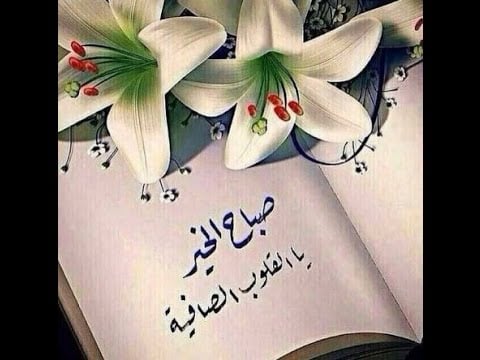 صباح الخير
يا القلوب الصافية